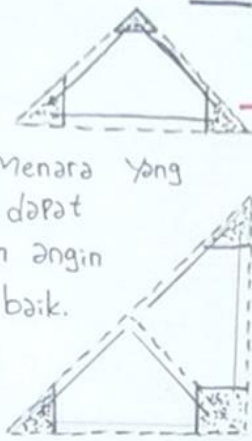 Menara yang
dapat
angin
baik.